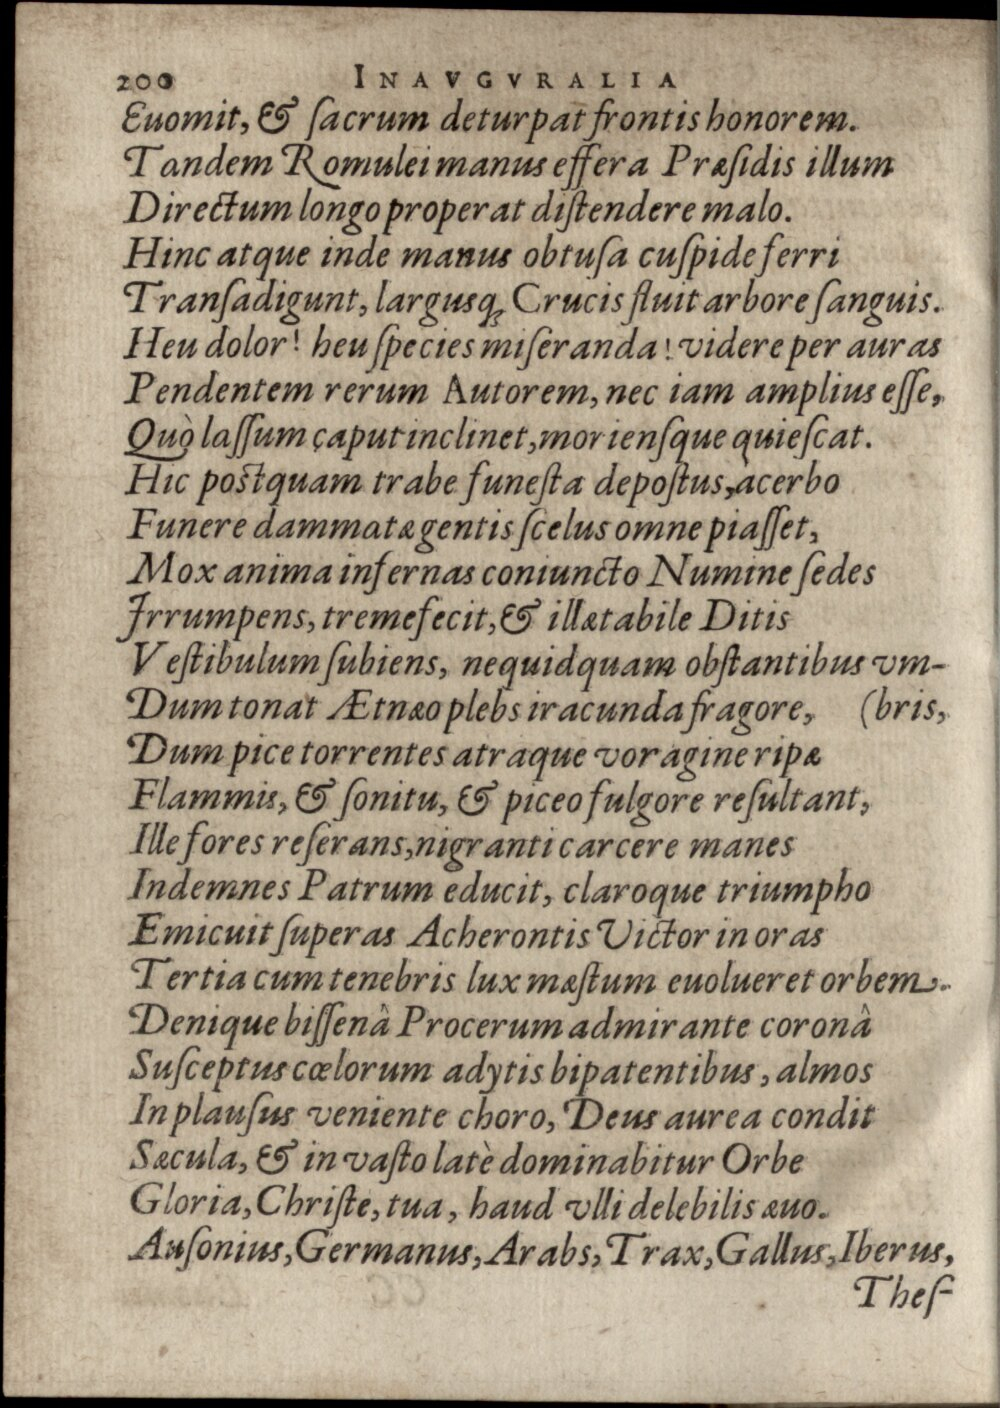 200 INAVGVRALIA
Euomit, & ſacrum deturpat frontis honorem.
Tandem Romulei manus effera Præſidis illum
Directum longo properat diſtendere malo.
Hinc atque inde manus obtuſa cuſpide ferri
Tranſadigunt, largusq; Crucis fluit arbore ſanguis.
Heu dolor! heu ſpecies miſeranda! videre per auras
Pendentem rerum Autorem, nec iam amplius eſſe,
Quò laſſum caput inclinet, morienſque quieſcat.
Hic poſtquam trabe funeſta depoſtus, acerbo
Funere dammatæ gentis ſcelus omne piaſſet,
Mox anima infernas coniuncto Numine ſedes
Irrumpens, tremefecit, & illætabile Ditis
Veſtibulum ſubiens, nequidquam obſtantibus vm-
Dum tonat Ætnæo plebs iracunda fragore, (bris,
Dum pice torrentes atraque voragine ripæ
Flammis, & ſonitu, & piceo fulgore reſultant,
Ille fores reſerans, nigranti carcere manes
Indemnes Patrum educit, claroque triumpho
Emicuit ſuperas Acherontis Victor in oras
Tertia cum tenebris lux mæſtum euolueret orbem.
Denique biſſenâ Procerum admirante coronâ
Suſceptus cœlorum adytis bipatentibus, almos
In plauſus veniente choro, Deus aurea condit
Sæcula, & in vaſto latè dominabitur Orbe
Gloria, Chriſte, tua, haud vlli delebilis æuo.
Auſonius, Germanus, Arabs, Trax, Gallus, Iberus,
Theſ-